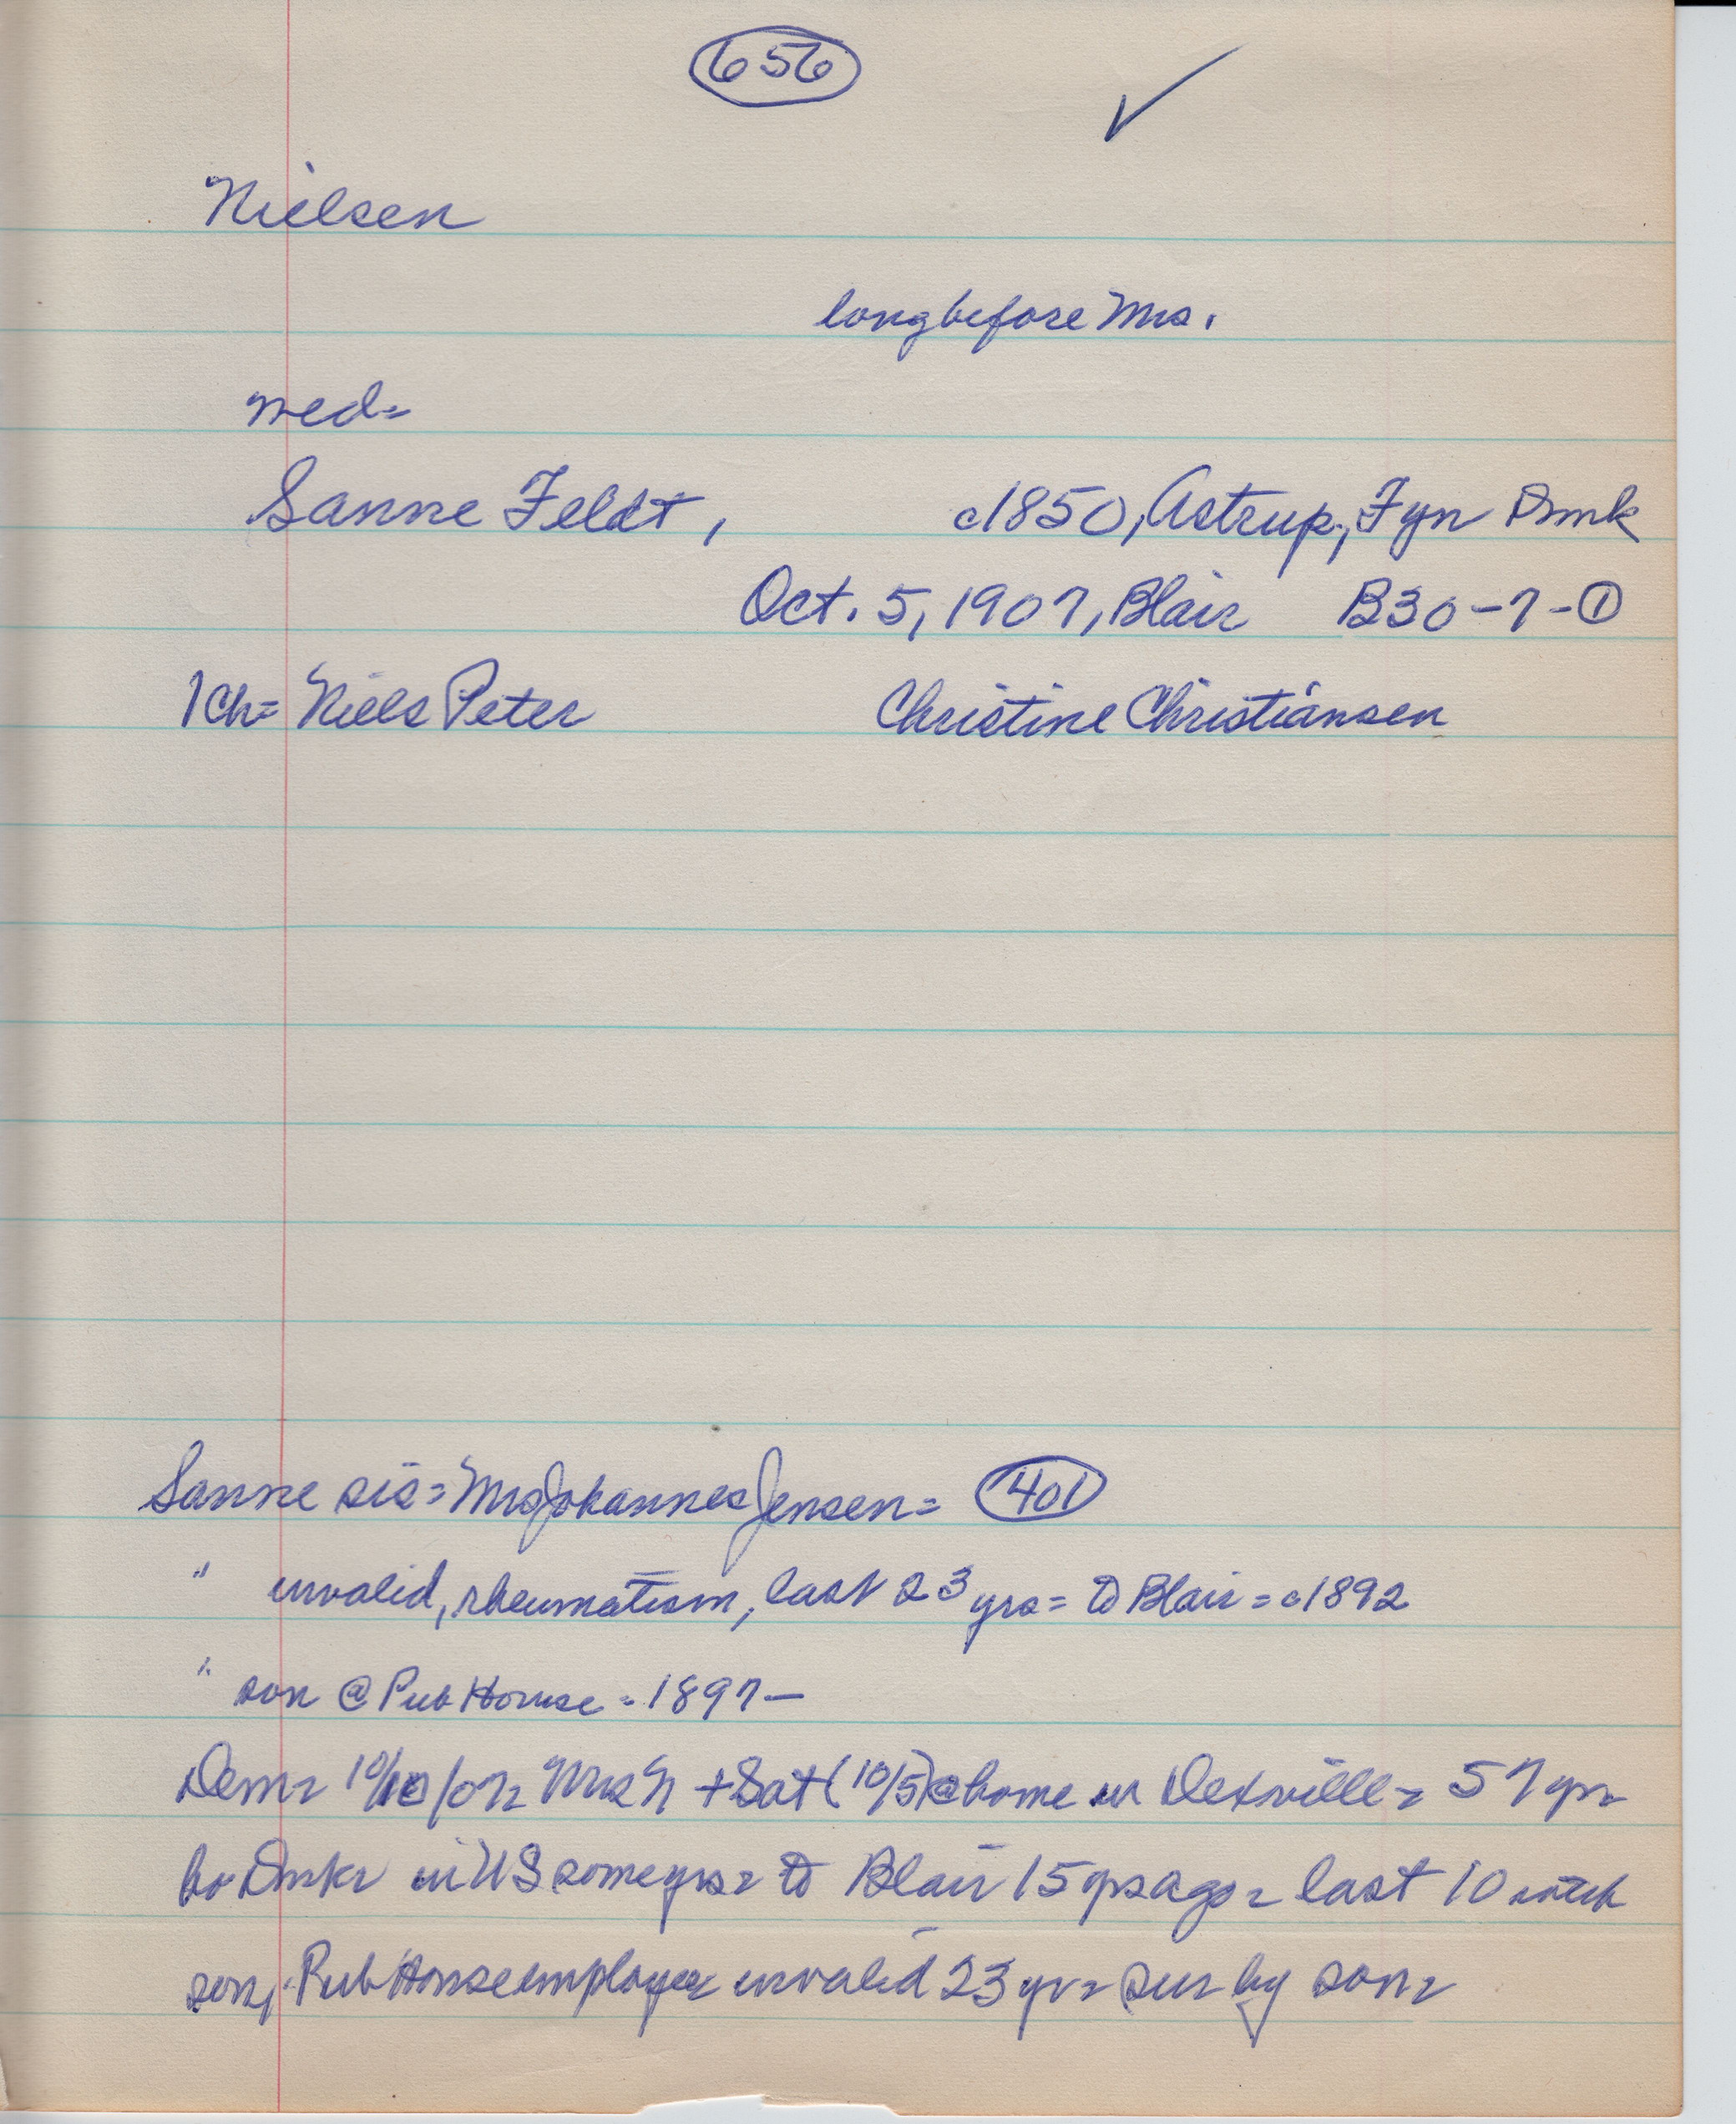 656 ✓
Nielsen
long before Mrs.
med=
Sanne Feldt, c1850, Astrup, Fyn Dmk
Oct. 5, 1907, Blair B30-7-①
1 Ch= Niels Peter Christine Christiansen
Sanne sis= Mrs Johannes Jensen= 401
" invalid, rheumatism, last 23 yrs= to Blair = c1892
" son @ Pub House = 1897-
Dem= 10/10/07= Mrs N + Sat (10/5) @ home in Dexville= 57 yr=
bo Dmk= in US some yrs= to Blair 15 yrs ago= last 10 with
son, Pub House employee invalid 23 yr= sur by son=